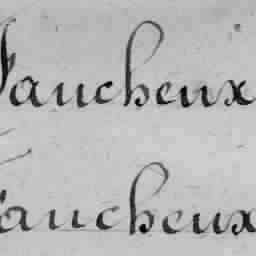 Faucheux
Faucheux